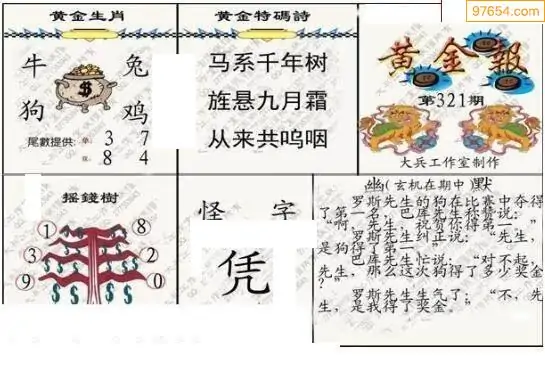 97654.com
黄金生肖
牛 兔
狗 鸡
尾數提供: 单: 3 7
双: 8 4
黄金特碼詩
马系千年树
旌悬九月霜
从来共呜咽
黄金報
第321期
大兵工作室制作
摇錢樹
1 8
3 2
9 0
怪 字
凭
幽(玄机在期中)默
罗斯先生的狗在比赛中夺得
了第一名，巴库先生称赞说：
“啊，先生，祝贺你得第一。”
罗斯先生纠正说：“先生，
是狗得了第一
巴库先生忙说：“对不起，
先生，那么这次狗得了多少奖金
？”
罗斯先生生气了：“不，先
生，是我得了奖金。”